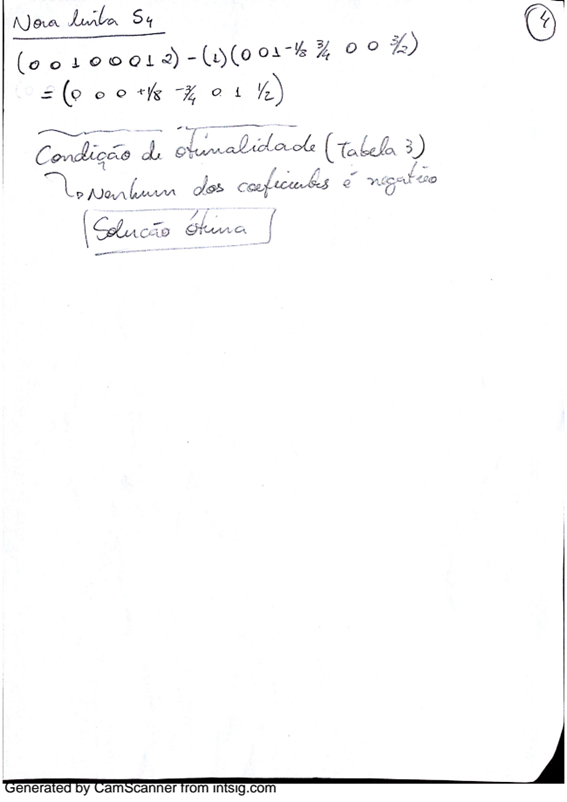 4
Nova linha S4
(0 0 1 0 0 0 1 2) - (1)(0 0 1 -1/8 3/4 0 0 3/2)
= (0 0 0 +1/8 -3/4 0 1 1/2)
Condição de otimalidade (Tabela 3)
↳ Nenhum dos coeficientes é negativo
Solução ótima
Generated by CamScanner from intsig.com